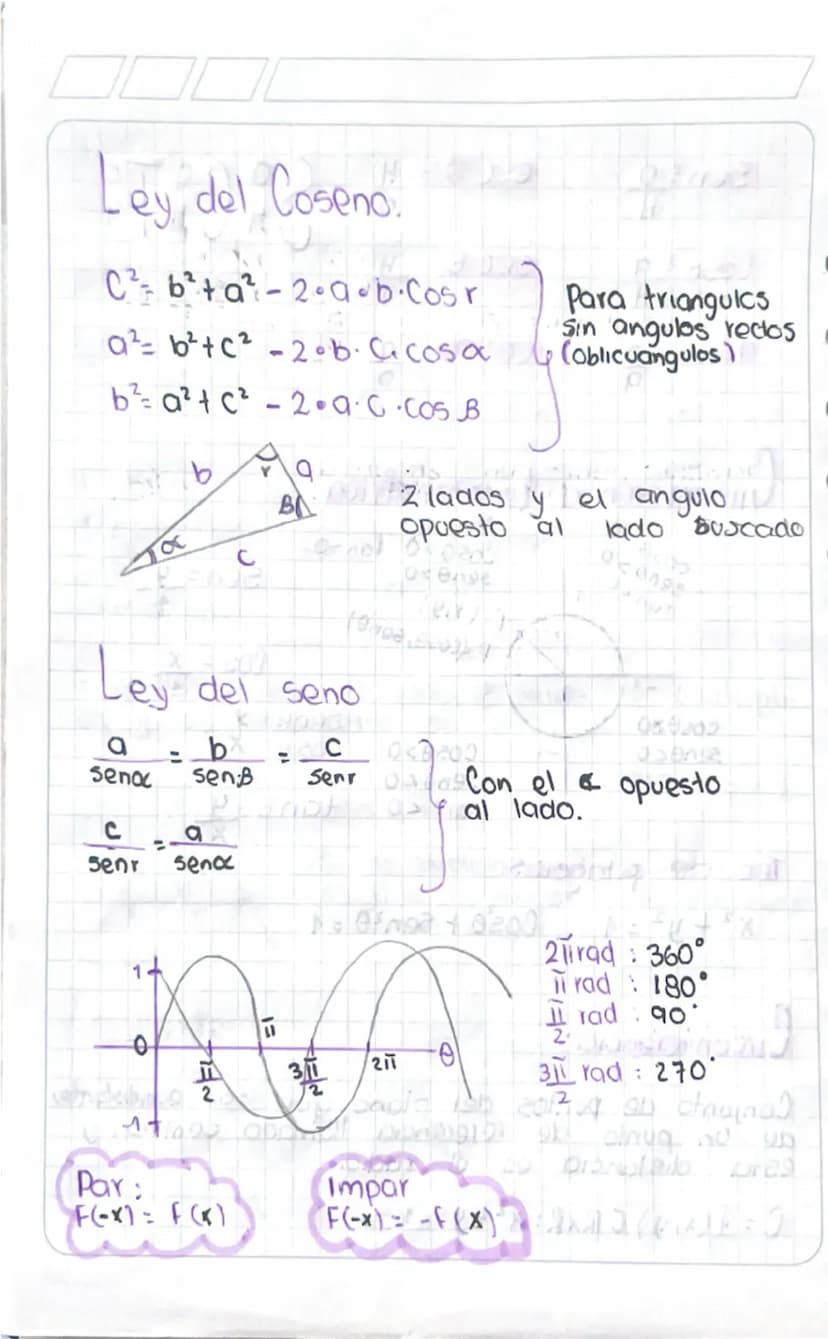 Ley del Coseno.
C²= b²+a² - 2•a•b•Cos r
a²= b²+c² - 2•b•C•cosα
b²= a²+c² - 2•a•C•cos β
Para triangulos
sin angulos rectos
(oblicuangulos)
b r a
B
α
c
2 lados y el angulo
opuesto al lado buscado
Ley del seno
a/senα = b/senβ = c/senr
c/senr = a/senα
Con el ∢ opuesto
al lado.
1
0
-1
π/2
π
3π/2
2π
θ
2π rad : 360°
π rad : 180°
π/2 rad : 90°
3π/2 rad : 270°
Par:
F(-x) = F(x)
Impar
F(-x) = -F(x)